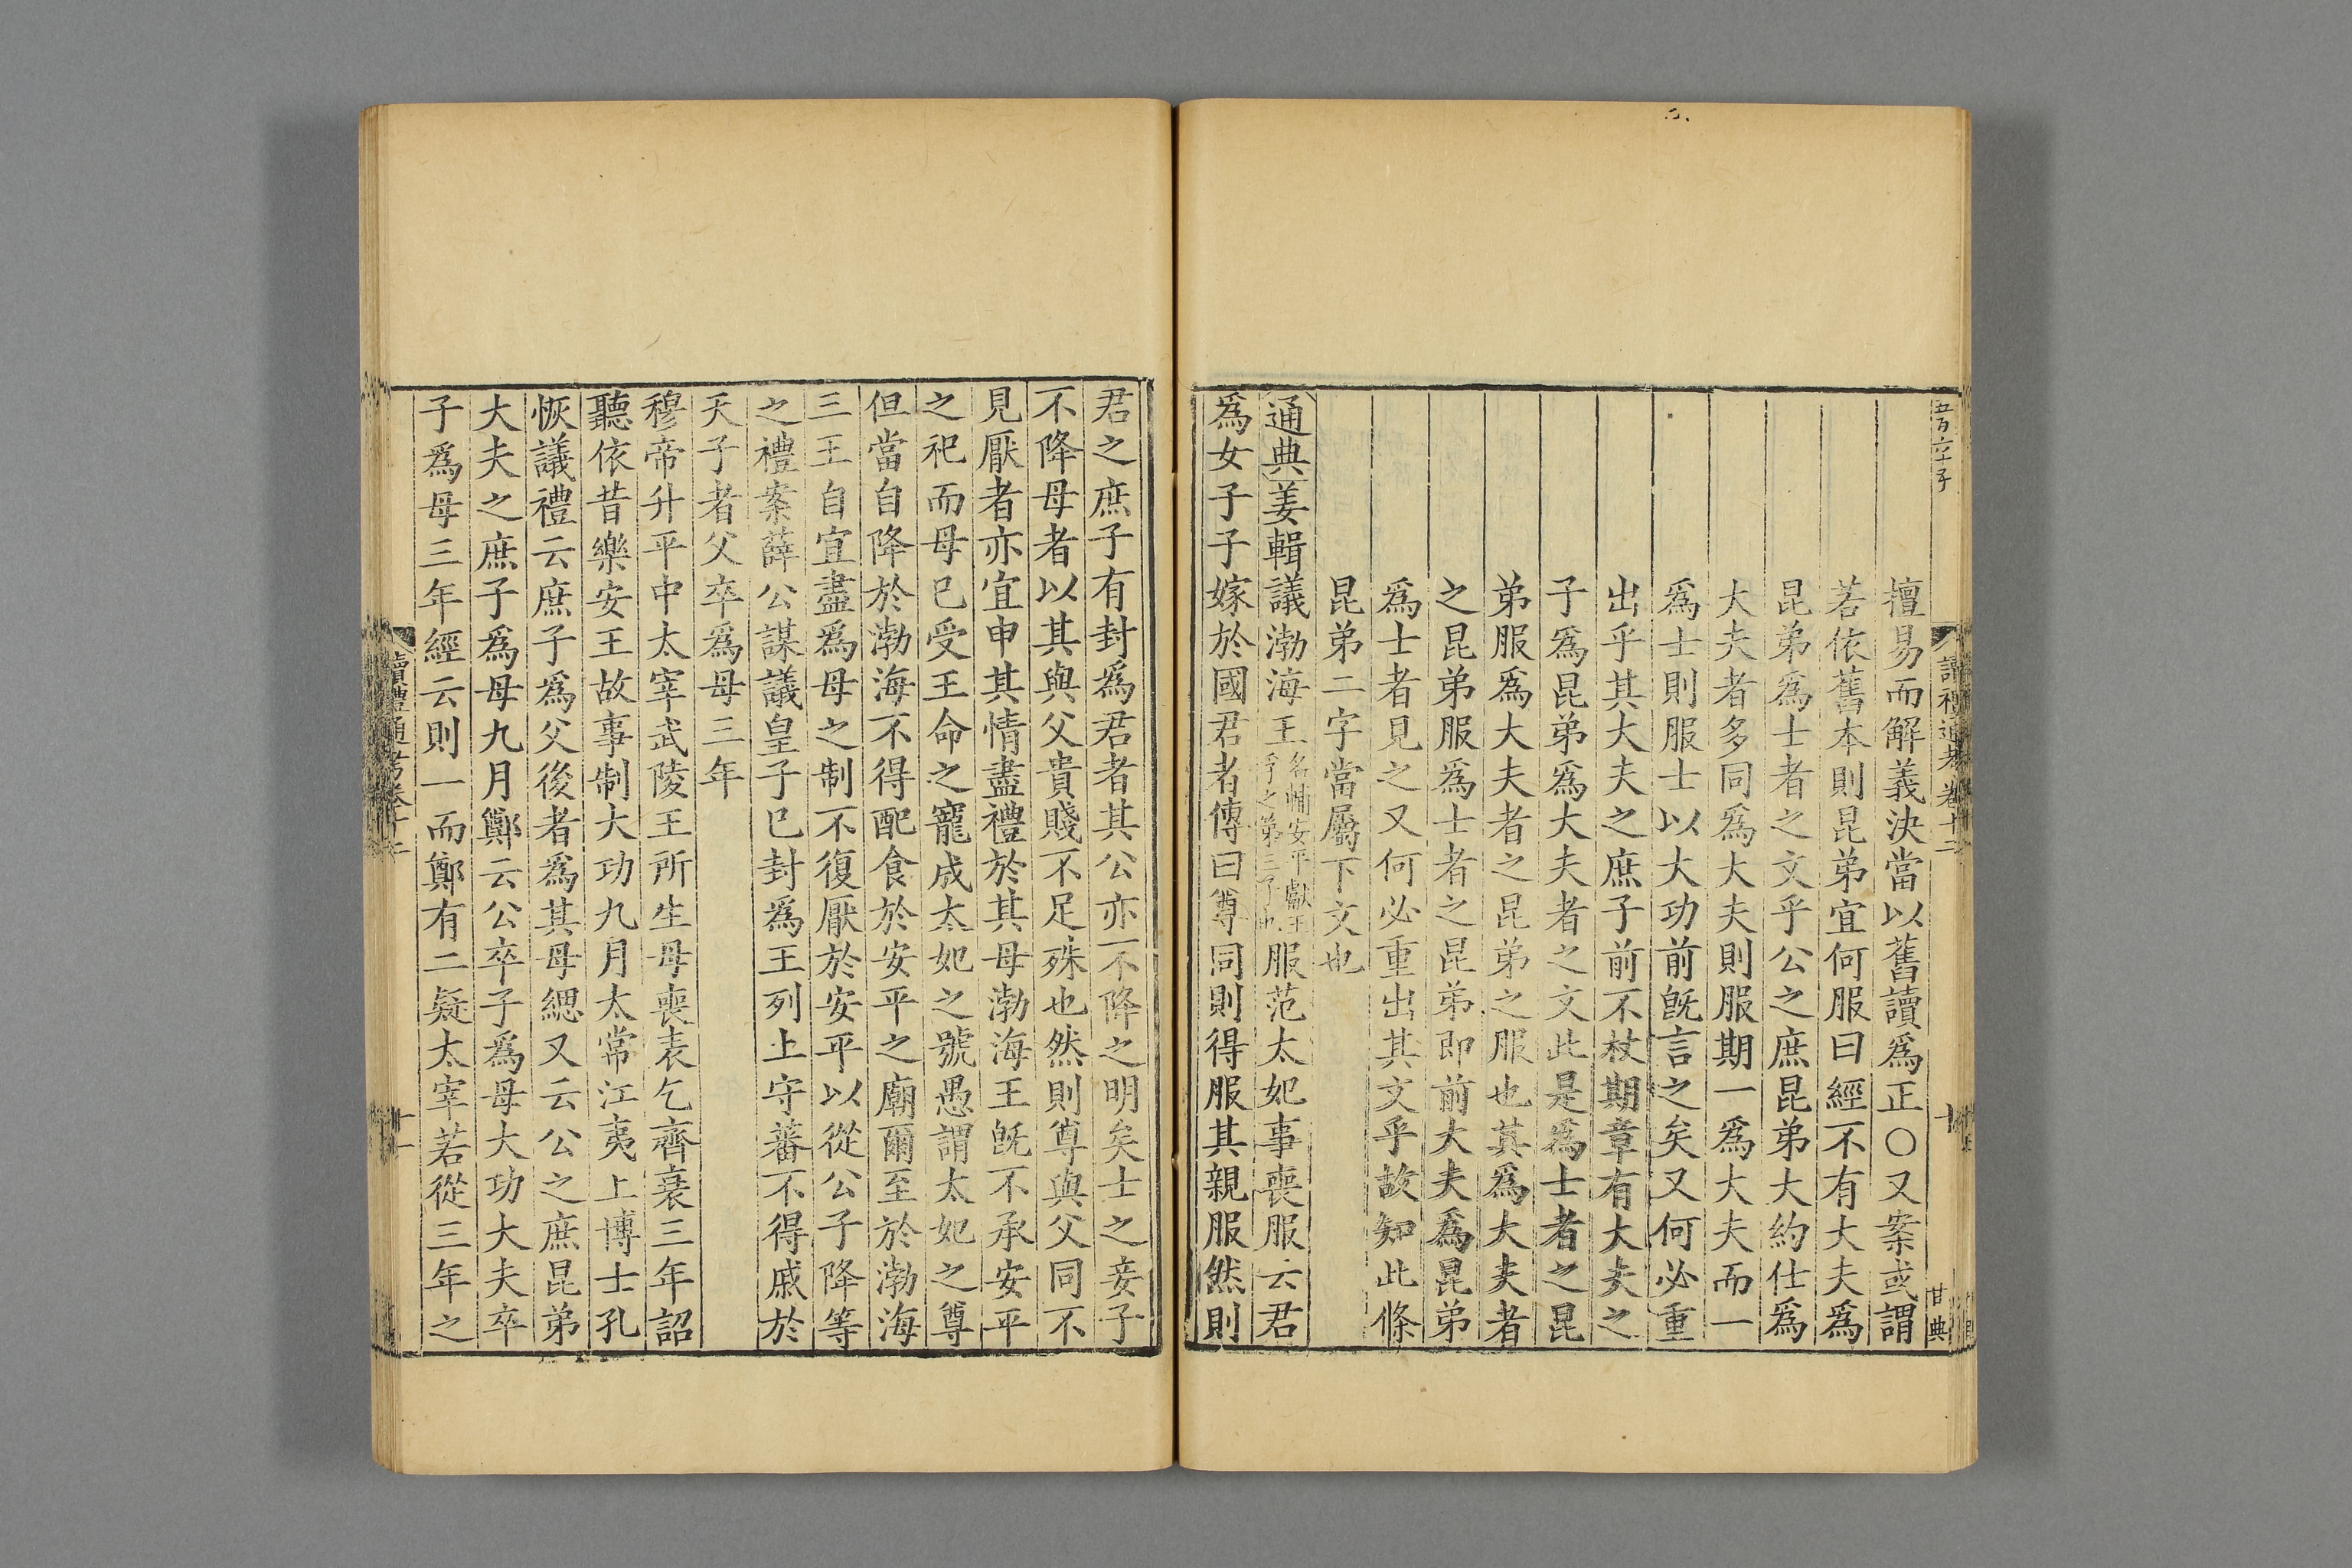 讀禮通考卷十二
十
甘典
擅易而解義決當以舊讀爲正○又案或謂
若依舊本則昆弟宜何服曰經不有大夫爲
昆弟爲士者之文乎公之庶昆弟大約仕爲
大夫者多同爲大夫則服期一爲大夫而一
爲士則服士以大功前旣言之矣又何必重
出乎其大夫之庶子前不杖期章有大夫之
子爲昆弟爲大夫者之文此是爲士者之昆
弟服爲大夫者之昆弟之服也其爲大夫者
之昆弟服爲士者之昆弟卽前大夫爲昆弟
爲士者見之又何必重出其文乎故知此條
昆弟二字當屬下文也
通典姜輯議渤海王名輔安平獻王孚之第三子也服范太妃事喪服云君
爲女子子嫁於國君者傳曰尊同則得服其親服然則
君之庶子有封爲君者其公亦不降之明矣士之妾子
不降母者以其與父貴賤不足殊也然則尊與父同不
見厭者亦宜申其情盡禮於其母渤海王旣不承安平
之祀而母已受王命之寵成太妃之號愚謂太妃之尊
但當自降於渤海不得配食於安平之廟爾至於渤海
三王自宜盡爲母之制不復厭於安平以從公子降等
之禮案薛公謀議皇子已封爲王列上守蕃不得戚於
天子者父卒爲母三年
穆帝升平中太宰武陵王所生母喪表乞齊衰三年詔
聽依昔樂安王故事制大功九月太常江夷上博士孔
恢議禮云庶子爲父後者爲其母緦又云公之庶昆弟
大夫之庶子爲母九月鄭云公卒子爲母大功大夫卒
子爲母三年經云則一而鄭有二疑太宰若從三年之
讀禮通考卷十二
十一